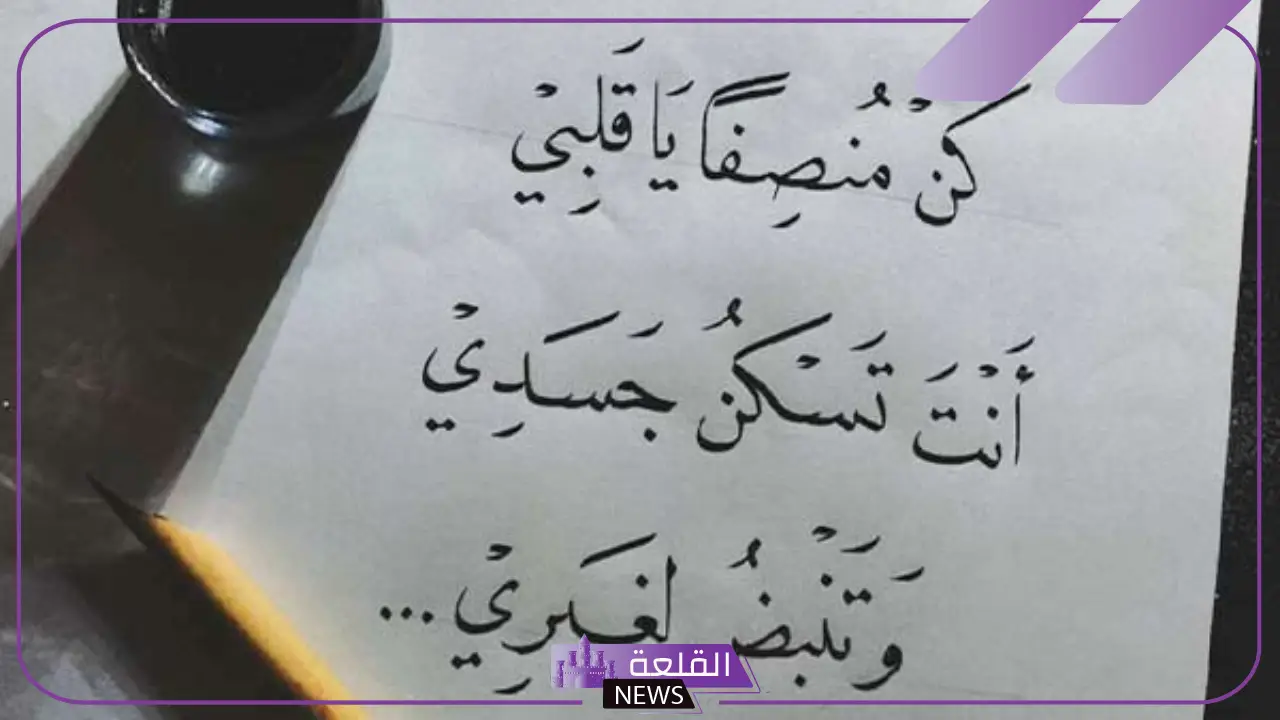 كُنْ مُنصِفًا يَا قَلبِيْ
أَنْتَ تَسْكنُ جَسَدِيْ
وَتَنْبضُ لغَيرِيْ...
القلعة
NEWS